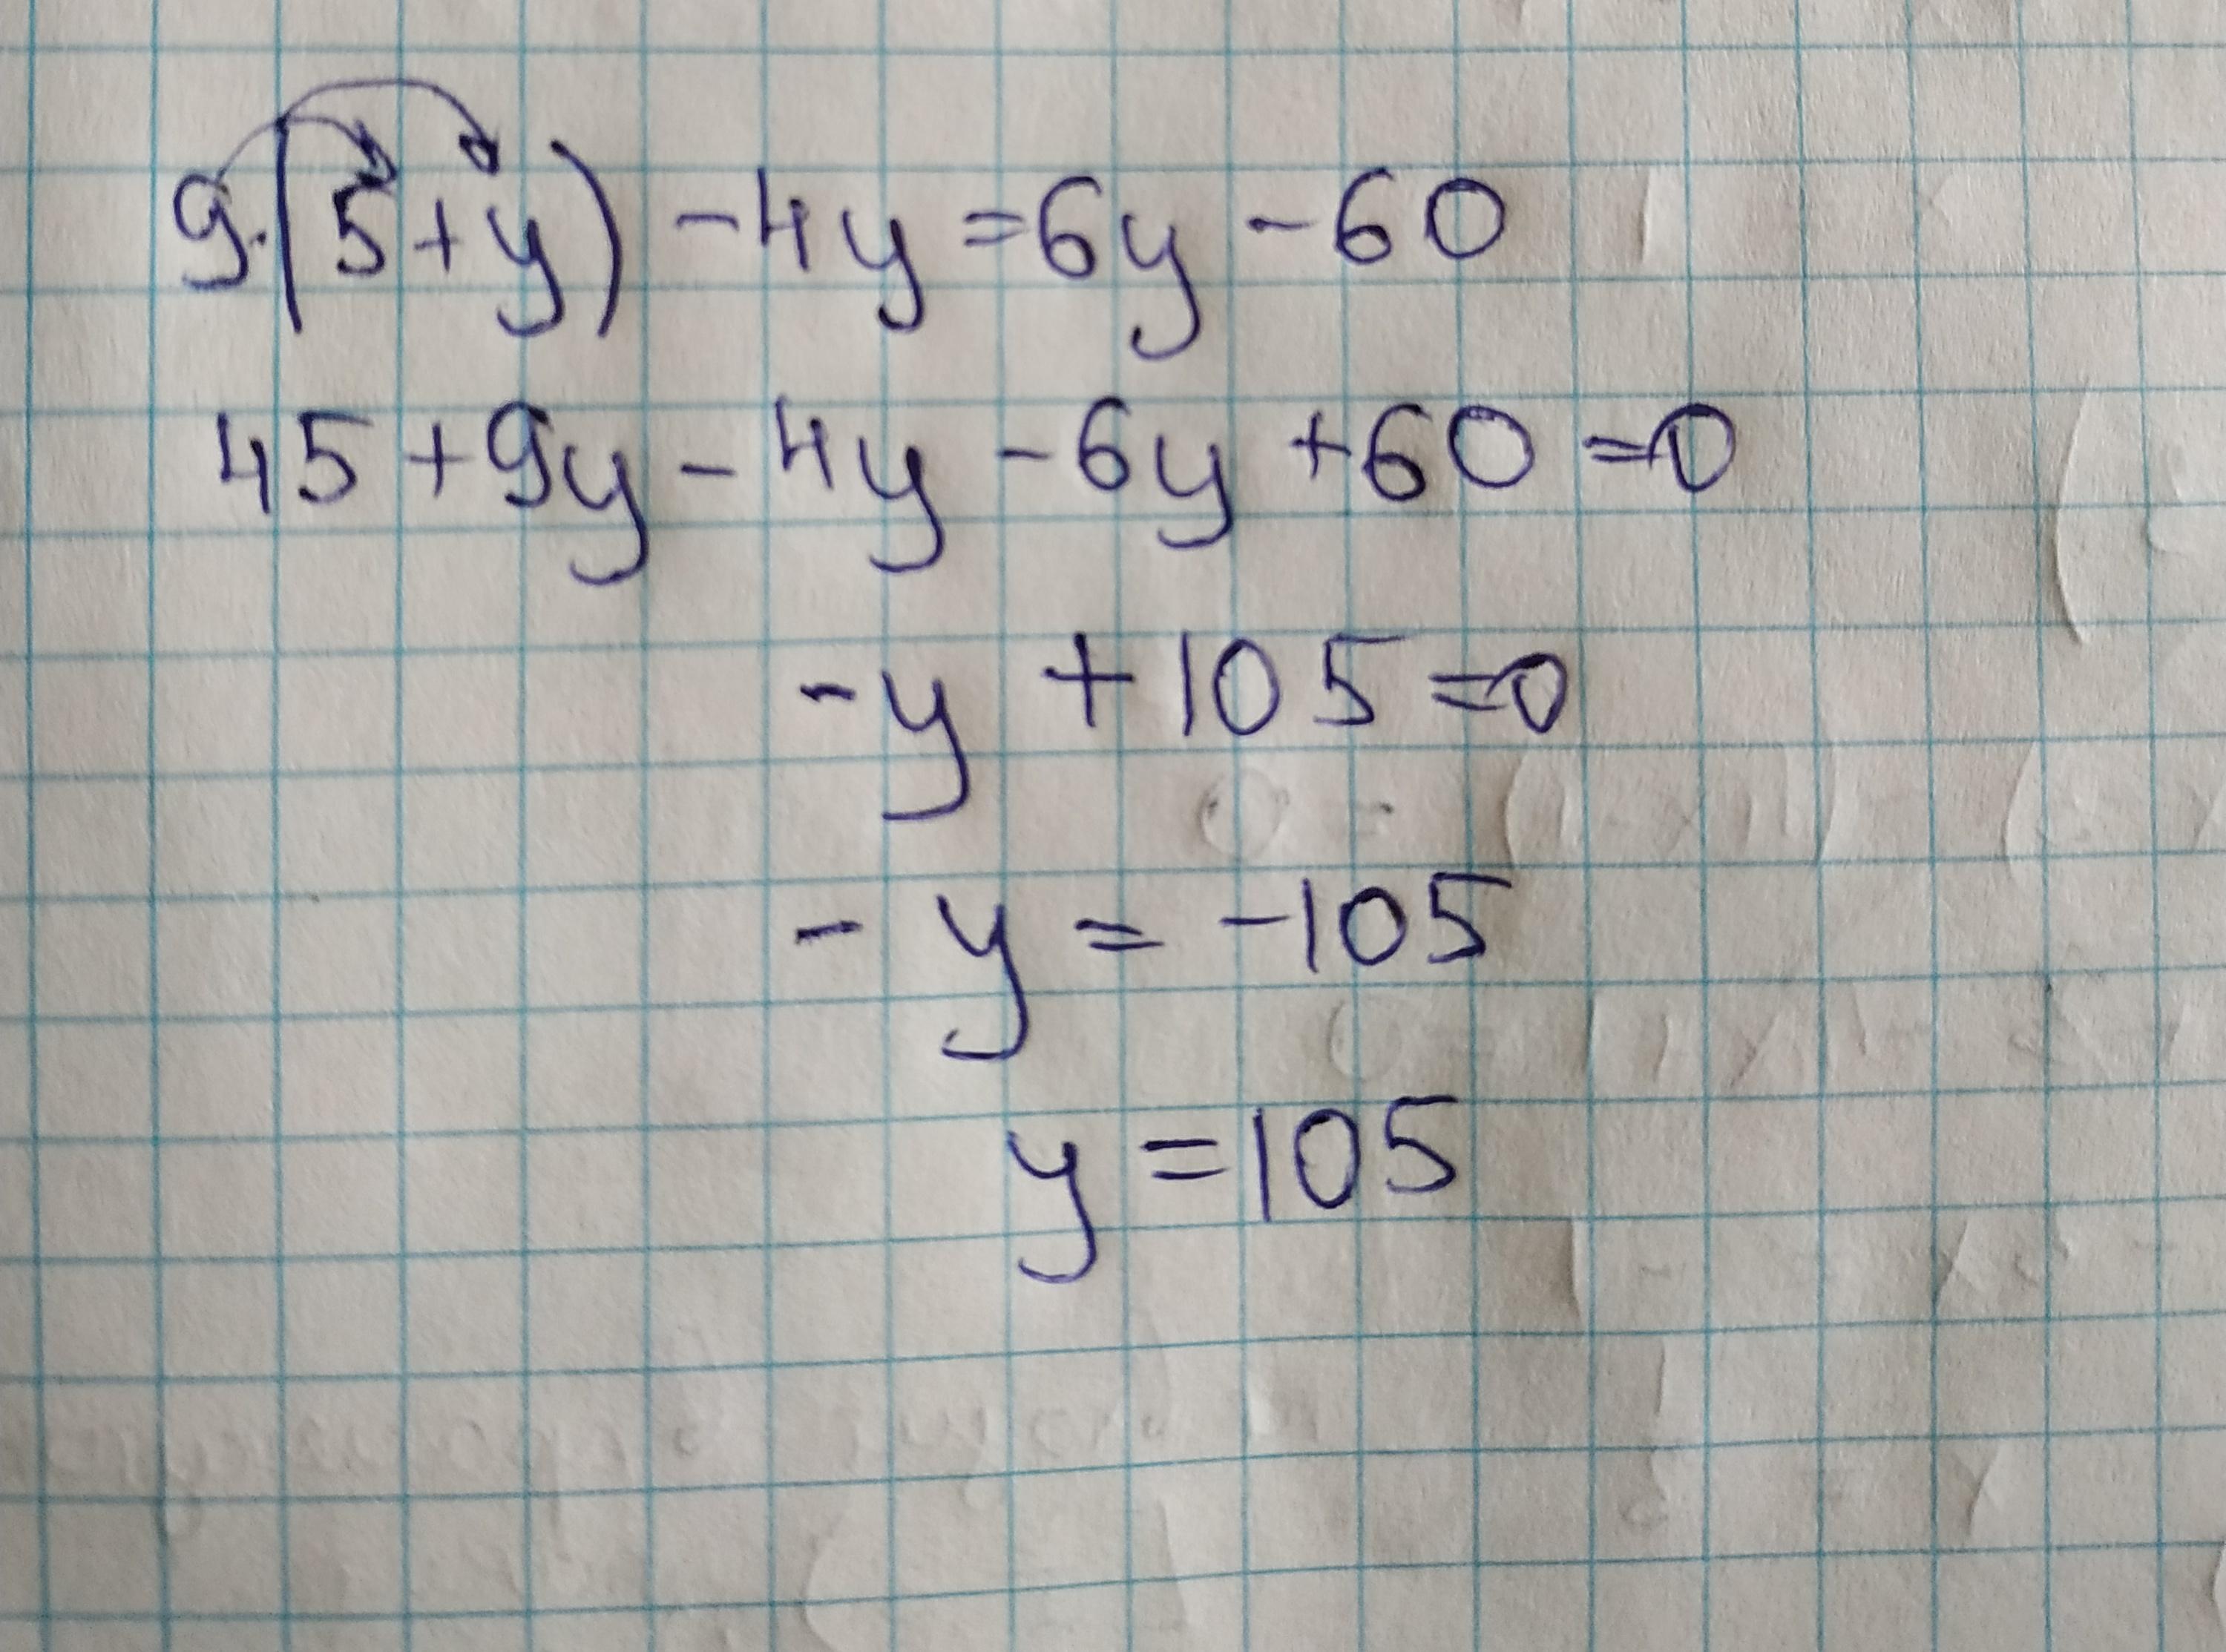 9·(5+y)-4y=6y-60
45+9y-4y-6y+60=0
-y+105=0
-y=-105
y=105